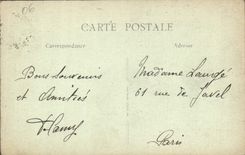 CARTE POSTALE
Correspondance
Adresse
Bons Souvenirs
et Amitiés
Madame
61 rue de Javel
Paris